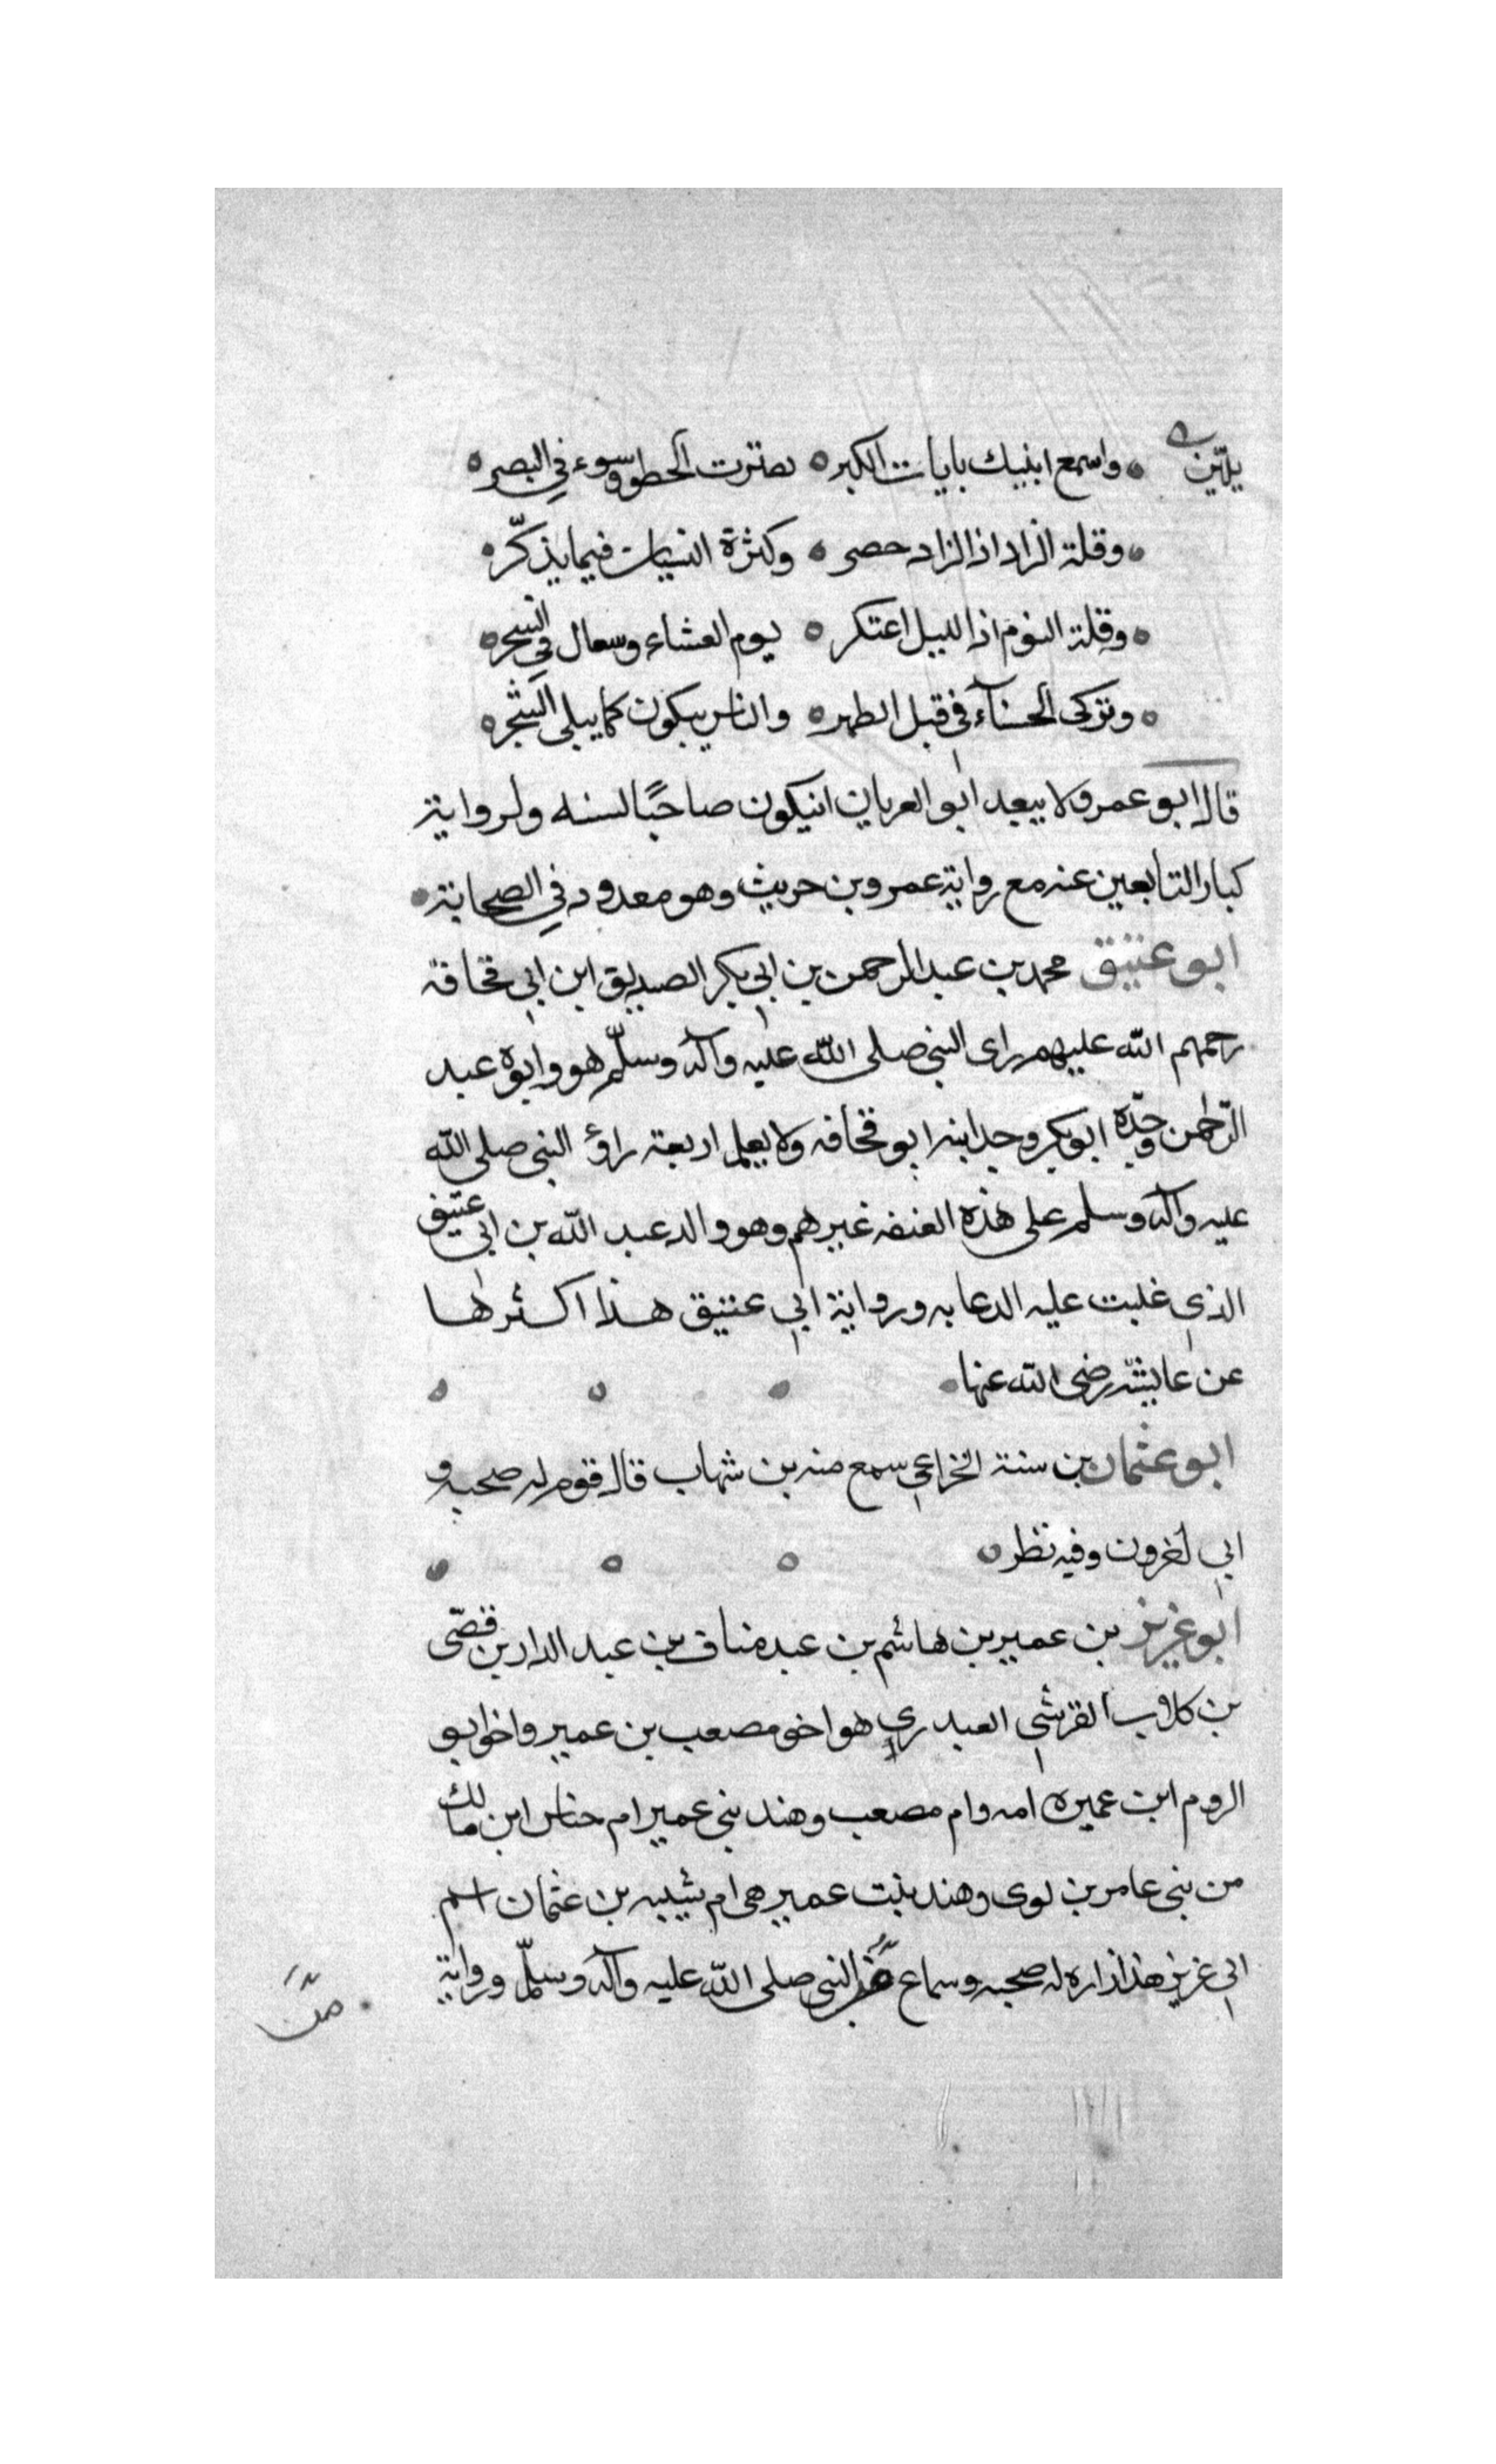 يلين ٥ واسمع ابنيك بايات الكبر ٥ تقترت الخطو وسوء في البصر ٥
٥ وقلة الزاد اذا الزاد حصر ٥ وكثرة النسيان فيما يذكّر ٥
٥ وقلة النوم اذا الليل اعتكر ٥ يوم العشاء وسعال في السحر ٥
٥ وتركى الحسنآء في قبل الطهر ٥ والناس يبكون كما يبلى الشجر ٥
قال ابو عمر ولا يبعد ابو العريان انيكون صاحبًا لسنه ولرواية
كبار التابعين عنه مع رواية عمرو بن حريث وهو معدود في الصحابة ٥
ابو عتيق محمد بن عبد الرحمن بن ابي بكر الصديق ابن ابي قحافة
رحمهم الله عليهم راى النبي صلى الله عليه وآله وسلّم هو وابوه عبد
الرّحمن وجدّه ابوبكر وجد ابيه ابو قحافه ولا يعلم اربعة راؤ النبي صلى الله
عليه وآله وسلم على هذه الصفه غيرهم وهو والد عبد الله بن ابي عتيق
الذي غلبت عليه الدعابه ورواية ابي عتيق هذا اكثرها
عن عايشة رضى الله عنها ٥ ٥ ٥ ٥
ابو عثمان بن سنة الخزاعي سمع منه بن شهاب قال قوم له صحبه و
ابي اخرون وفيه نظر ٥ ٥ ٥ ٥
ابو عزيز بن عمير بن هاشم بن عبد مناف بن عبد الدار بن قصّى
بن كلاب القرشي العبدري هو اخو مصعب بن عمير واخو ابو
الروم ابن عميره امه وام مصعب وهند بنى عمير ام خناس ابن مالك
من بنى عامر بن لوى وهند بنت عمير هى ام شيبه بن عثمان اسم
ابي عزيز هذا زراره له صحبه وسماع من النبي صلى الله عليه وآله وسلّم ورواية
من